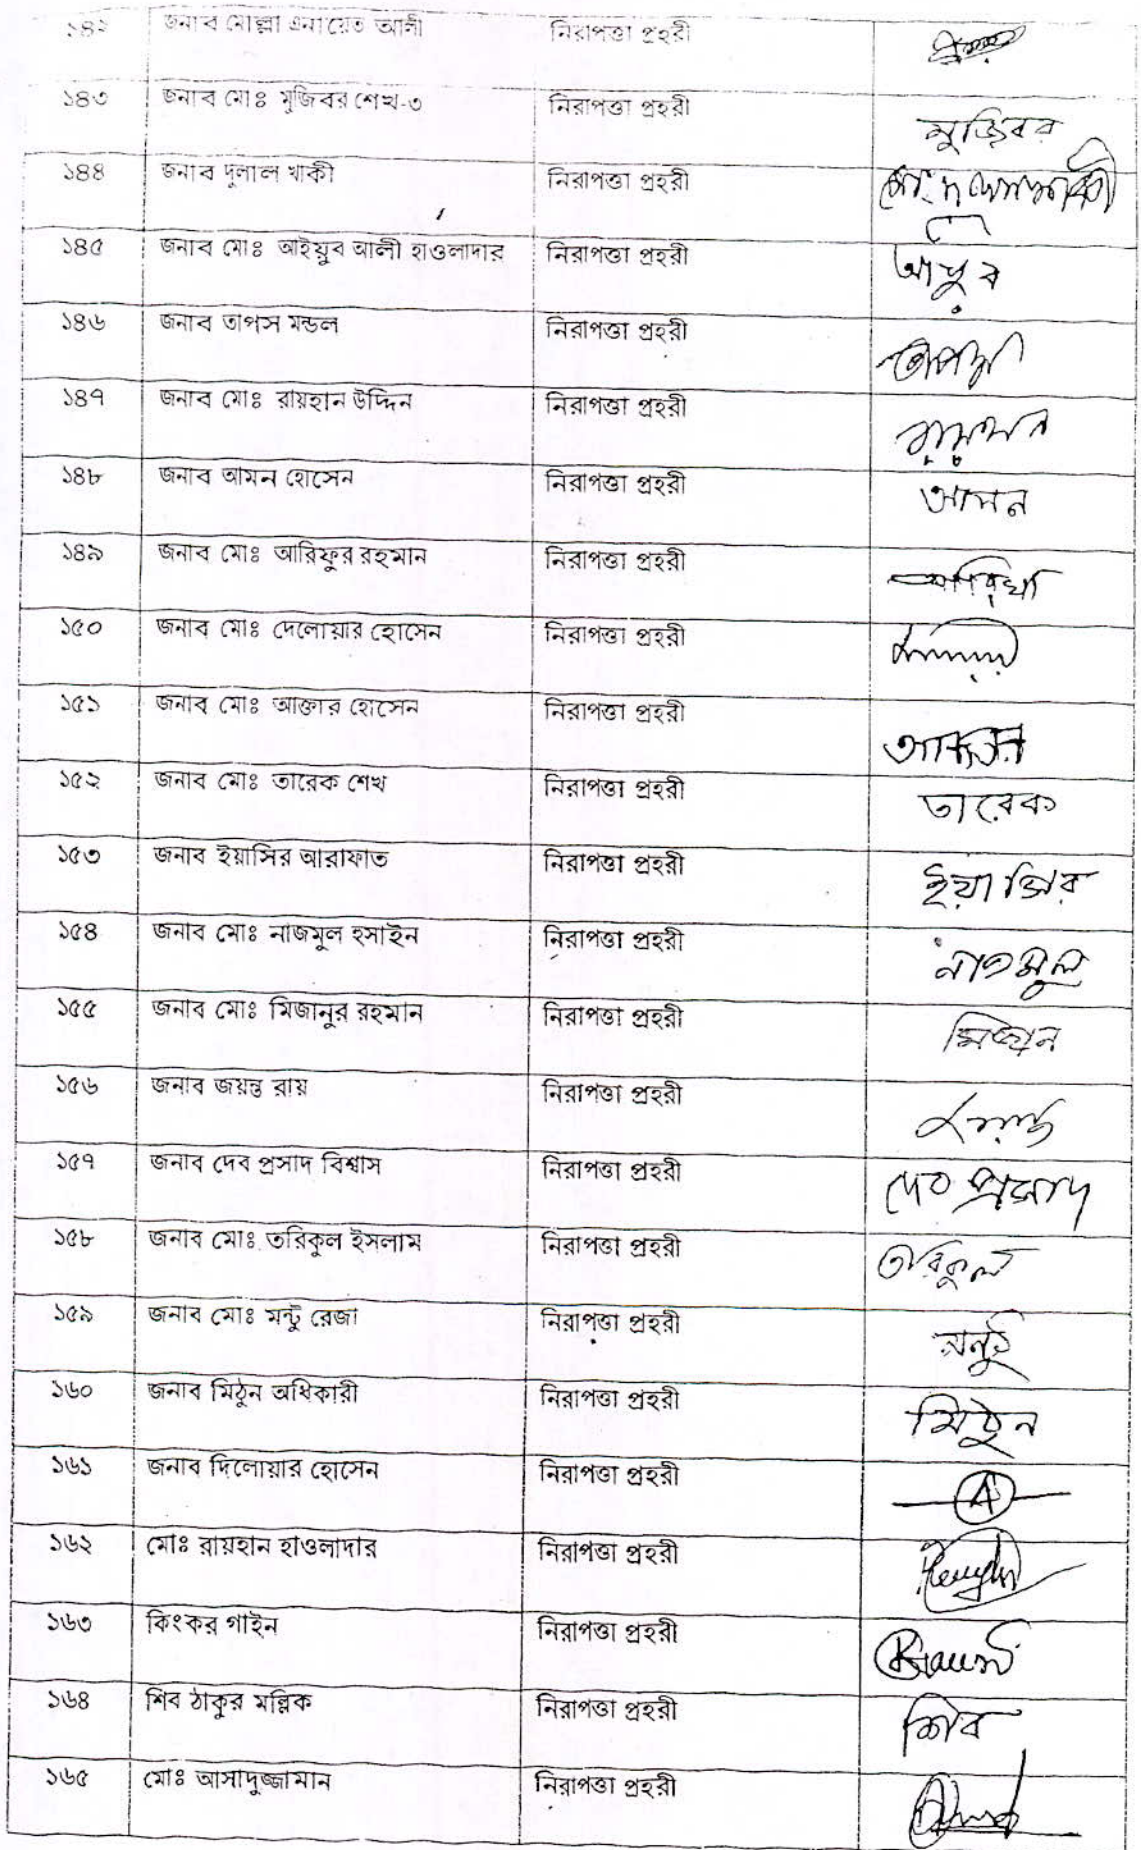 ১৪২ জনাব মোল্লা এনায়েত আলী নিরাপত্তা প্রহরী
১৪৩ জনাব মোঃ মুজিবর শেখ-৩ নিরাপত্তা প্রহরী মুজিবর
১৪৪ জনাব দুলাল খাকী নিরাপত্তা প্রহরী
১৪৫ জনাব মোঃ আইয়ুব আলী হাওলাদার নিরাপত্তা প্রহরী
১৪৬ জনাব তাপস মন্ডল নিরাপত্তা প্রহরী
১৪৭ জনাব মোঃ রায়হান উদ্দিন নিরাপত্তা প্রহরী
১৪৮ জনাব আমন হোসেন নিরাপত্তা প্রহরী আমন
১৪৯ জনাব মোঃ আরিফুর রহমান নিরাপত্তা প্রহরী
১৫০ জনাব মোঃ দেলোয়ার হোসেন নিরাপত্তা প্রহরী
১৫১ জনাব মোঃ আক্তার হোসেন নিরাপত্তা প্রহরী
১৫২ জনাব মোঃ তারেক শেখ নিরাপত্তা প্রহরী তারেক
১৫৩ জনাব ইয়াসির আরাফাত নিরাপত্তা প্রহরী ইয়াসির
১৫৪ জনাব মোঃ নাজমুল হুসাইন নিরাপত্তা প্রহরী নাজমুল
১৫৫ জনাব মোঃ মিজানুর রহমান নিরাপত্তা প্রহরী মিজান
১৫৬ জনাব জয়ন্ত রায় নিরাপত্তা প্রহরী
১৫৭ জনাব দেব প্রসাদ বিশ্বাস নিরাপত্তা প্রহরী দেব প্রসাদ
১৫৮ জনাব মোঃ তরিকুল ইসলাম নিরাপত্তা প্রহরী তরিকুল
১৫৯ জনাব মোঃ মন্টু রেজা নিরাপত্তা প্রহরী মন্টু
১৬০ জনাব মিঠুন অধিকারী নিরাপত্তা প্রহরী মিঠুন
১৬১ জনাব দিলোয়ার হোসেন নিরাপত্তা প্রহরী
১৬২ মোঃ রায়হান হাওলাদার নিরাপত্তা প্রহরী
১৬৩ কিংকর গাইন নিরাপত্তা প্রহরী
১৬৪ শিব ঠাকুর মল্লিক নিরাপত্তা প্রহরী শিব
১৬৫ মোঃ আসাদুজ্জামান নিরাপত্তা প্রহরী